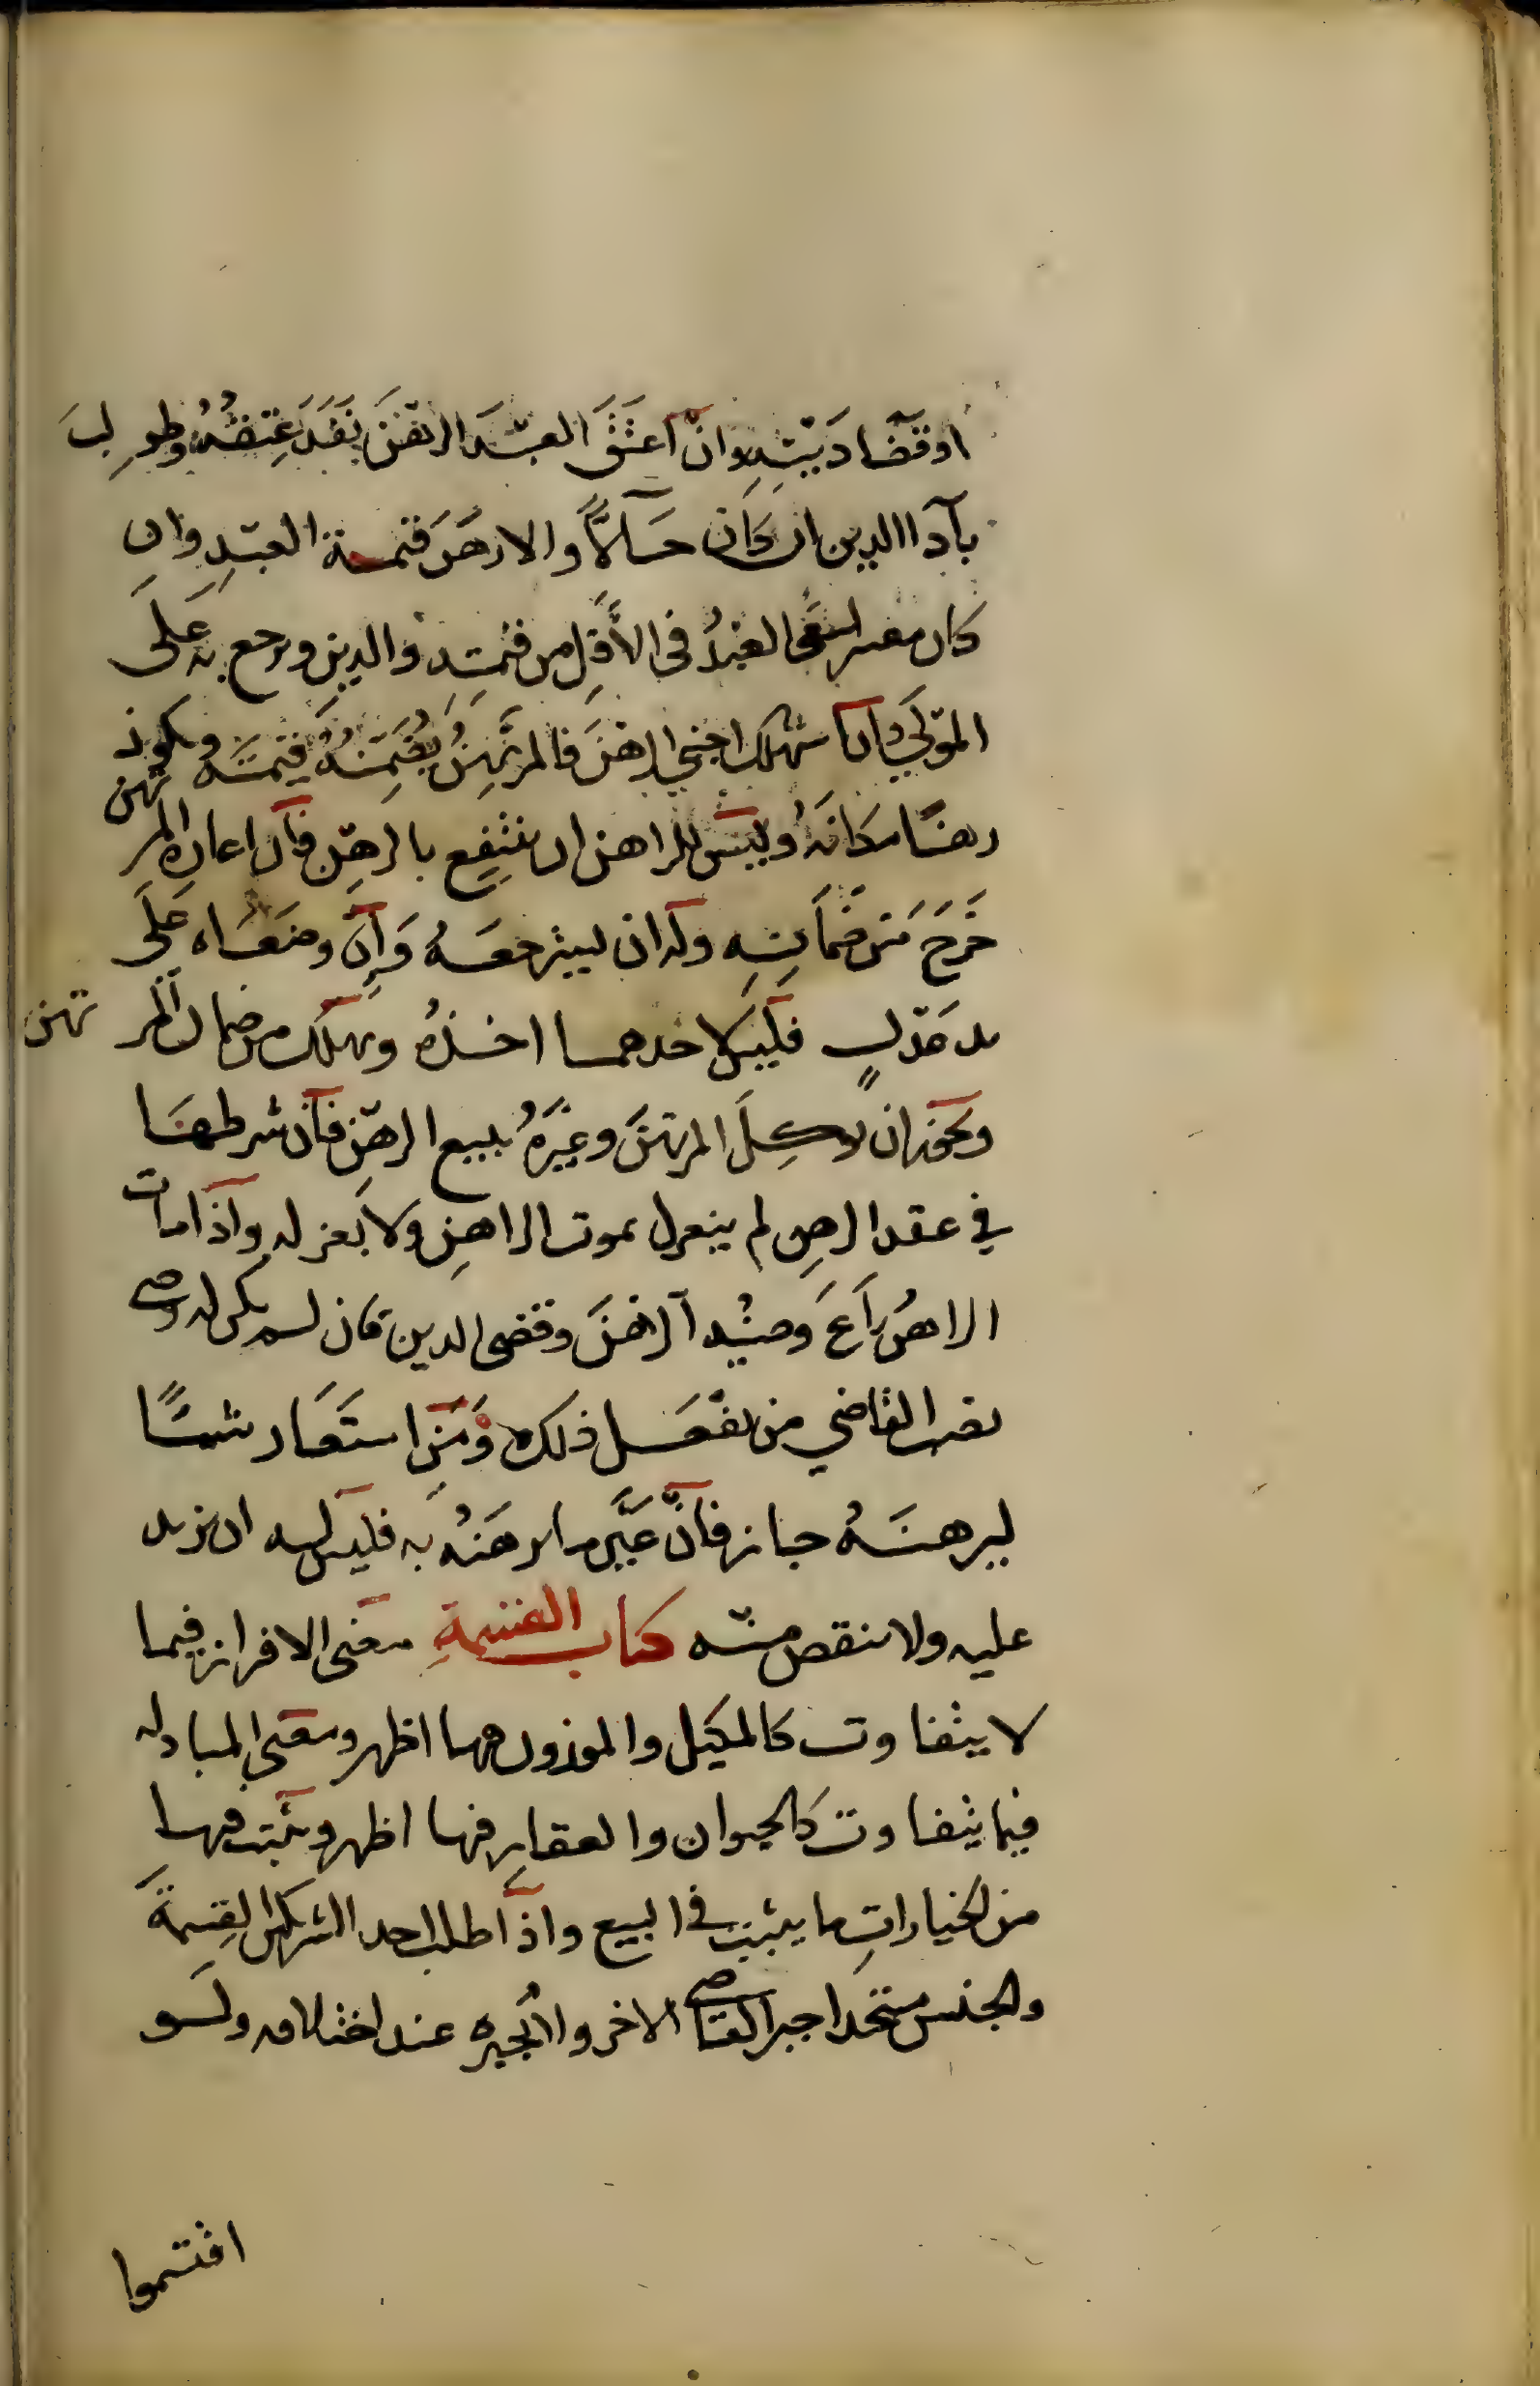 او قضا دَيْنِهِ وانْ اَعتَقَ العبْدَ الرّهْنَ نَفَذَ عِتقُهُ وطولِبَ
بآدا الدين ان كَان حَالًّا والا رهَنَ قيمة العبْدِ وان
كان معسرا سَعَى العَبْدُ في الأَقلِ من قيمتِهِ والدين ورجع به عَلَى
المَوْلَى وان استهلك اجنبي الرهْنَ فالمرتَهِنُ يُضَمِّنُهُ قيمتَه ويكون
رهنًا مكَانَهُ وليسَ للراهن ان ينتفِع بالرهْنِ فان اعاره المرتهن
خَرَجَ مَن ضَمَانِه وله ان يسترجعَهُ وَاِن وضَعَاه عَلَى
يد عَدلٍ فليس لاحدهما اخذهُ ويهلك من ضمان المرتهن
ويجوز ان يوكِلَ المرتهنَ وغيْرَهُ ببيع الرهْن فان شرطهَا
في عقد الرهن لم ينعزل بموت الراهِنِ ولا بعزله واذا مات
الراهنُ بَاعَ وصيُه الرهْنَ وقضى الدين فان لم يكن له وصي
نصب القاضي من يفعَل ذلك ومَن استَعَار شيًا
ليرهنَهُ جاز فانْ عَيَّن ما يرهَنهُ به فليس له ان يزيد
عليه ولا ينقص منْه كتاب القسمةِ معنى الافراز فيما
لا يتفاوت كالمكيل والموزون فيها اظهر ومعنى المبادله
فيما يتفاوت كالحيوان والعقارِ فيها اظهر ويثبت فيها
من الخياراتِ ما يثبت في البيع واذا طلب احد الشريكين القِسمةَ
والجنس متحد اجبر القاضي الاخر ولا يُجبره عند اختلافه ولو
اقتسموا